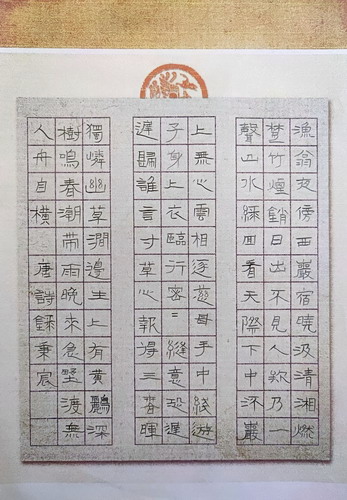 漁翁夜傍西巖宿曉汲清湘燃
楚竹煙銷日出不見人欸乃一
聲山水綠回看天際下中流巖
上無心雲相逐慈母手中綫遊
子身上衣臨行密=縫意恐遲
遲歸誰言寸草心報得三春暉
獨憐幽草澗邊生上有黃鸝深
樹鳴春潮帶雨晚來急野渡無
人舟自橫 唐詩錄秉宸